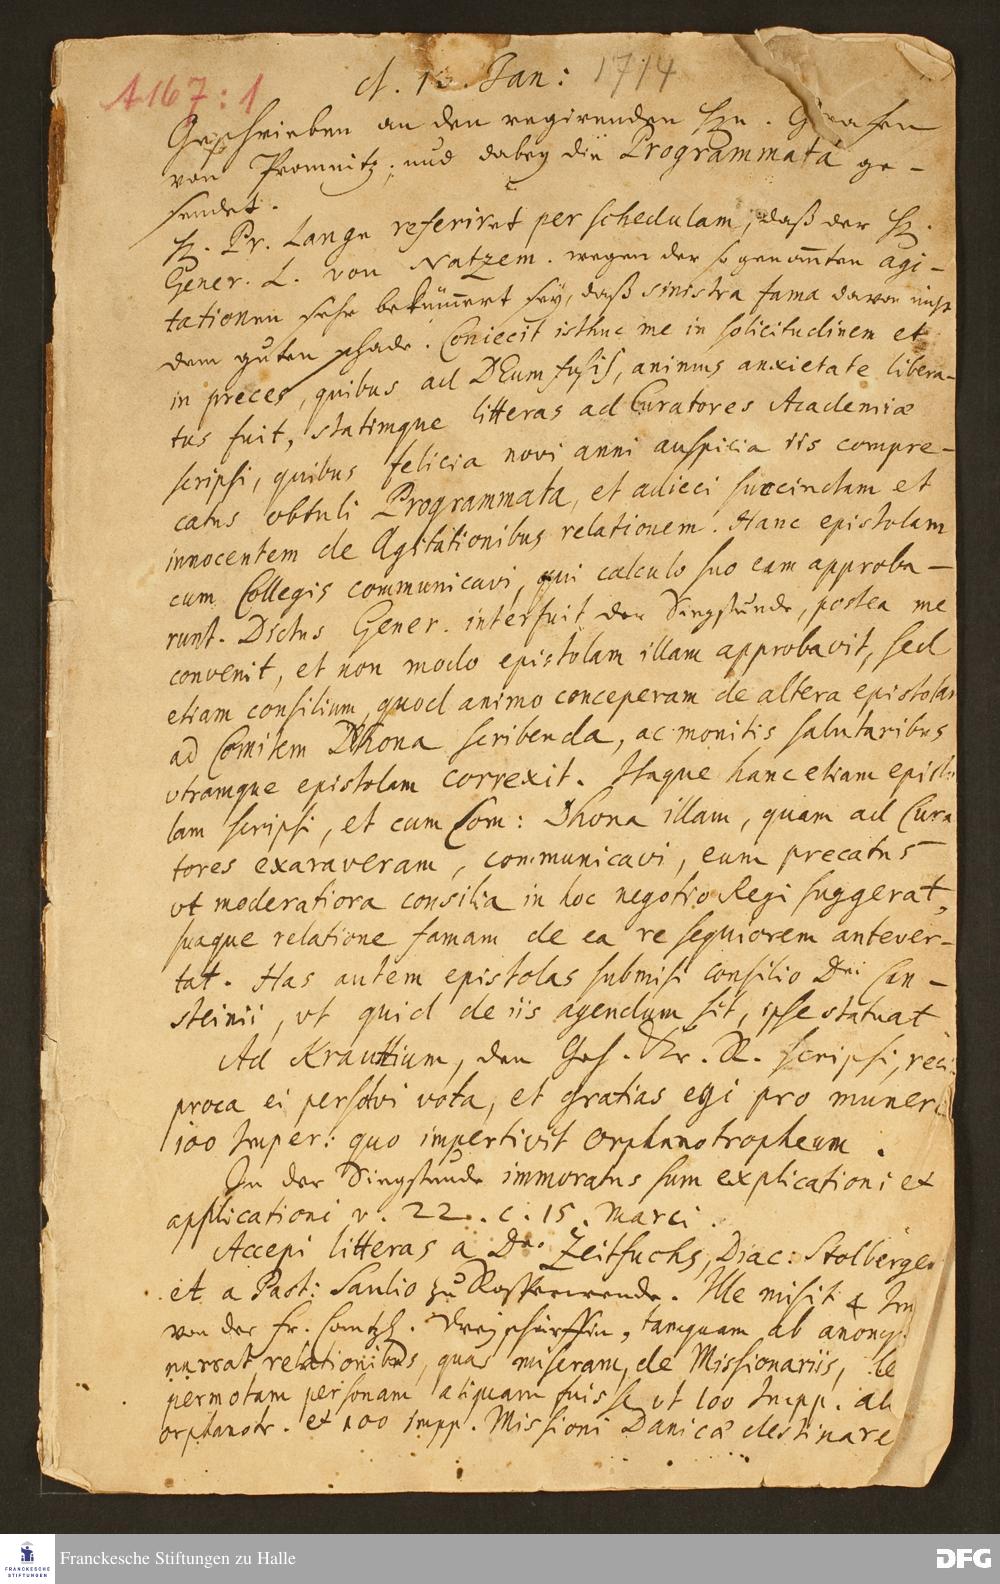 A 167 : 1
d. 1 . Jan: 1714
Geschrieben an den regirenden Hn. Grafen
von Promnitz, und dabey die Programmata ge-
sendet.
H. Pr. Lange referiret per schedulam, daß der H.
Gener. L. von Natzem. wegen der so genañten agi-
tationen sehr bekümert sey, daß sinistra fama davon nicht
dem guten schade. Coniecit isthuc me in solicitudinem et
in preces, quibus ad DEum fusis, animus anxietate libera-
tus fuit, statimque litteras ad Curatores Academiæ
scripsi, quibus felicia novi anni auspicia iis compre-
catus obtuli Programmata, et adieci succinctam et
innocentem de Agitationibus relationem. Hanc epistolam
cum Collegis communicavi, qui calculo suo eam approba-
runt. Dictus Gener. interfuit der Singstunde, postea me
convenit, et non modo epistolam illam approbavit, sed
etiam consilium, quod animo conceperam de altera epistola
ad Comitem Dhona scribenda, ac monitis salutaribus
utramque epistolam correxit. Itaque hanc etiam episto
lam scripsi, et cum Com: Dhona illam, quam ad Cura
tores exaraveram, communicavi, eum precatus
ut moderatiora consilia in hoc negotio Regi suggerat,
suaque relatione famam de ea re sequiorem antever-
tat. Has autem epistolas submisi consilio Dni Can-
steinii, ut quid de iis agendum sit, ipse statuat
Ad Krauttium, den Geh. Kr. R. scripsi, reci
proca ei persolvi vota, et gratias egi pro muner
100 Imper: quo impertivit Orphanotropheum.
In der Singstunde immoratus sum explicationi et
applicationi v. 22. c. 15. Marci.
Accepi litteras a Dno Zeitfuchs, Diac: Stolberge
et a Past: Saulio zu . Ille misit 4 Im
von der Fr. . , tamquam ab anony
narrat relationibus, quas miseram, de Missionariis,
permotam personam aliquam fuisse ut 100 Impp. ab
orphanotr. et 100 impp. Missioni Danicæ destinare
Franckesche Stiftungen
Franckesche Stiftungen zu Halle
DFG